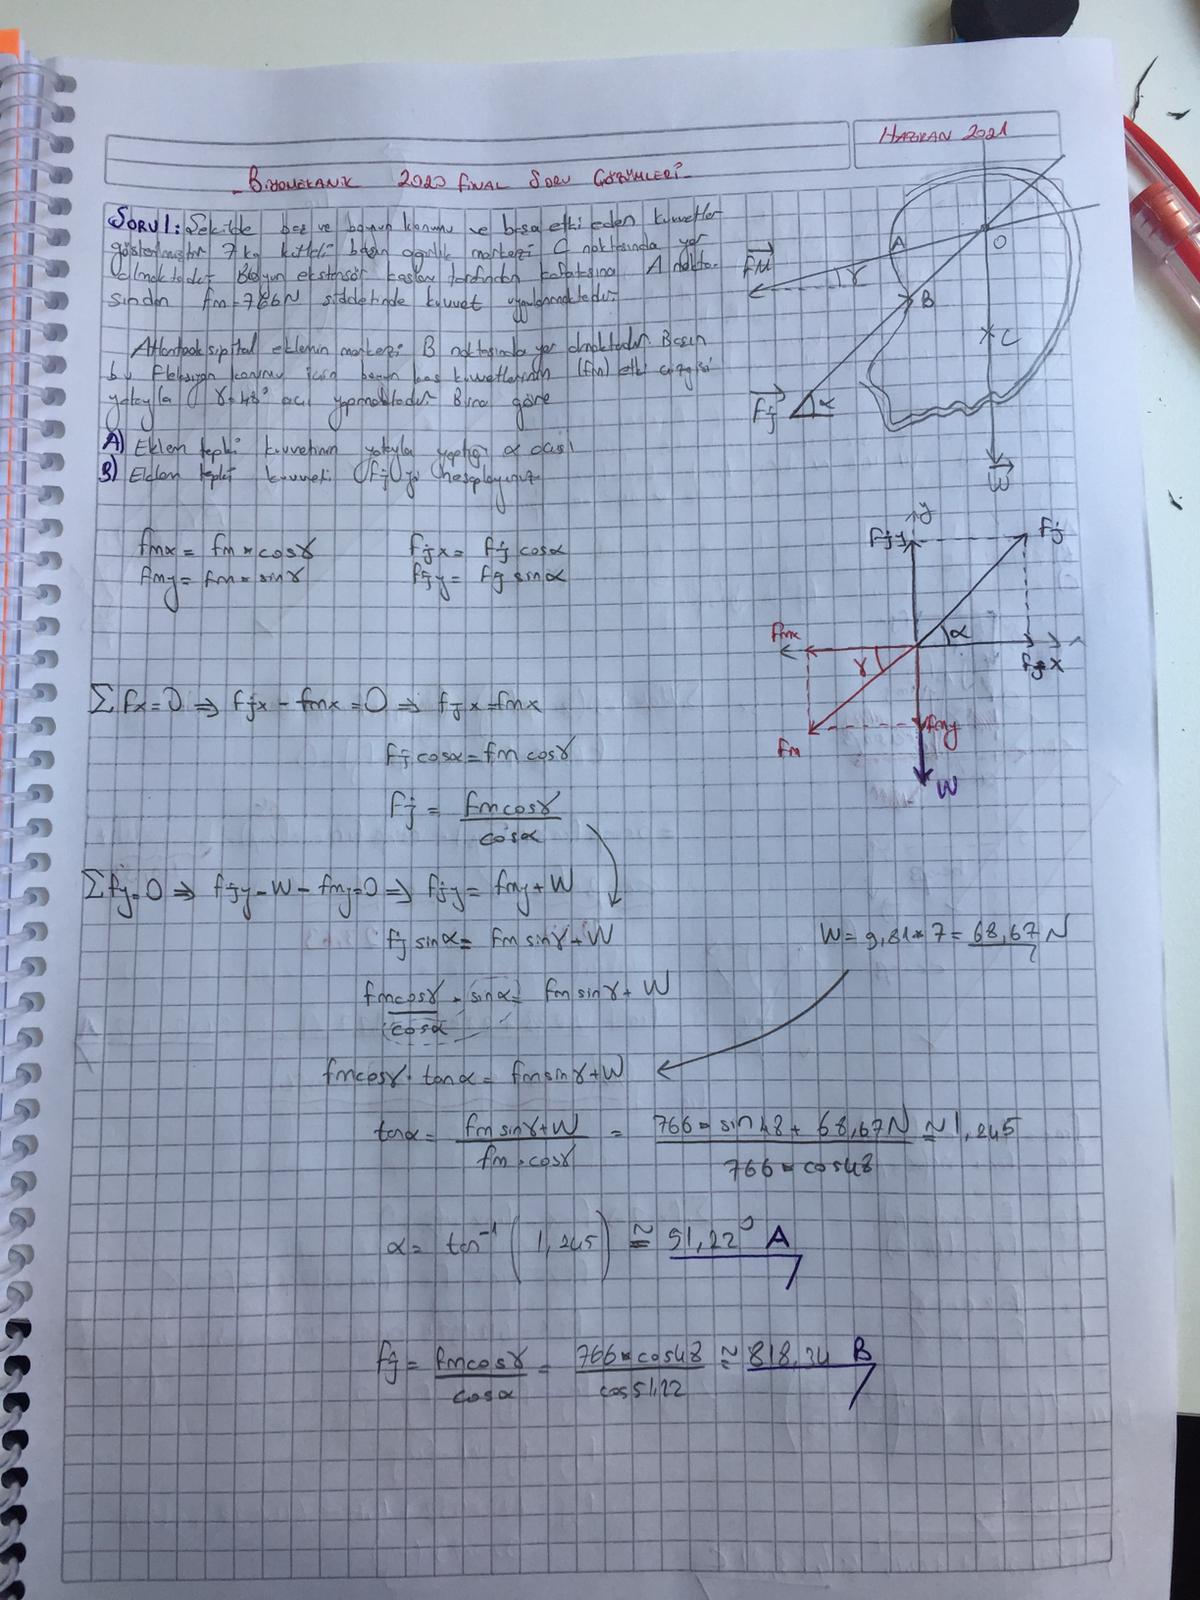 HAZİRAN 2021
BİYOMEKANİK 2020 FİNAL SORU ÇÖZÜMLERİ
SORU 1: Şekilde baş ve boyun konumu ve başa etki eden kuvvetler
gösterilmiştir 7 kg kütleli başın ağırlık merkezi C noktasında yer
almaktadır Boyun ekstensör kasları tarafından kafatasına A nokta-
sından fm=766N şiddetinde kuvvet uygulanmaktadır
Atlantooksipital eklemin merkezi B noktasında yer almaktadır. Başın
bu fleksiyon konumu için boyun kas kuvvetlerinin (fm) etki çizgisi
yatayla γ=48° açı yapmaktadır Buna göre
A) Eklem tepki kuvvetinin yatayla yaptığı α açısı
B) Eklem tepki kuvveti (fj)yi hesaplayınız
FM
A
γ
O
B
C
Fj
α
W
fmx = fm * cosγ fjx = fj cosα
fmy = fm * sinγ fjy = fj sinα
y
fjy
fj
fmx
γ
α
x
fjx
fm
fmy
W
Σfx=0 ⇒ fjx - fmx = 0 ⇒ fjx = fmx
Fj cosα = fm cosγ
Fj = fmcosγ / cosα
Σfy=0 ⇒ fjy - W - fmy=0 ⇒ fjy = fmy + W
fj sinα = fm sinγ + W
W = 9,81*7 = 68,67 N
fmcosγ / cosα · sinα = fm sinγ + W
fmcosγ · tanα = fmsinγ + W
tanα = fm sinγ+W / fm · cosγ = 766 * sin48 + 68,67N / 766 * cos48 ≅ 1,245
α = tan⁻¹ (1,245) ≅ 51,22° A
fj = fmcosγ / cosα = 766 * cos48 / cos51,22 ≅ 818,34 B